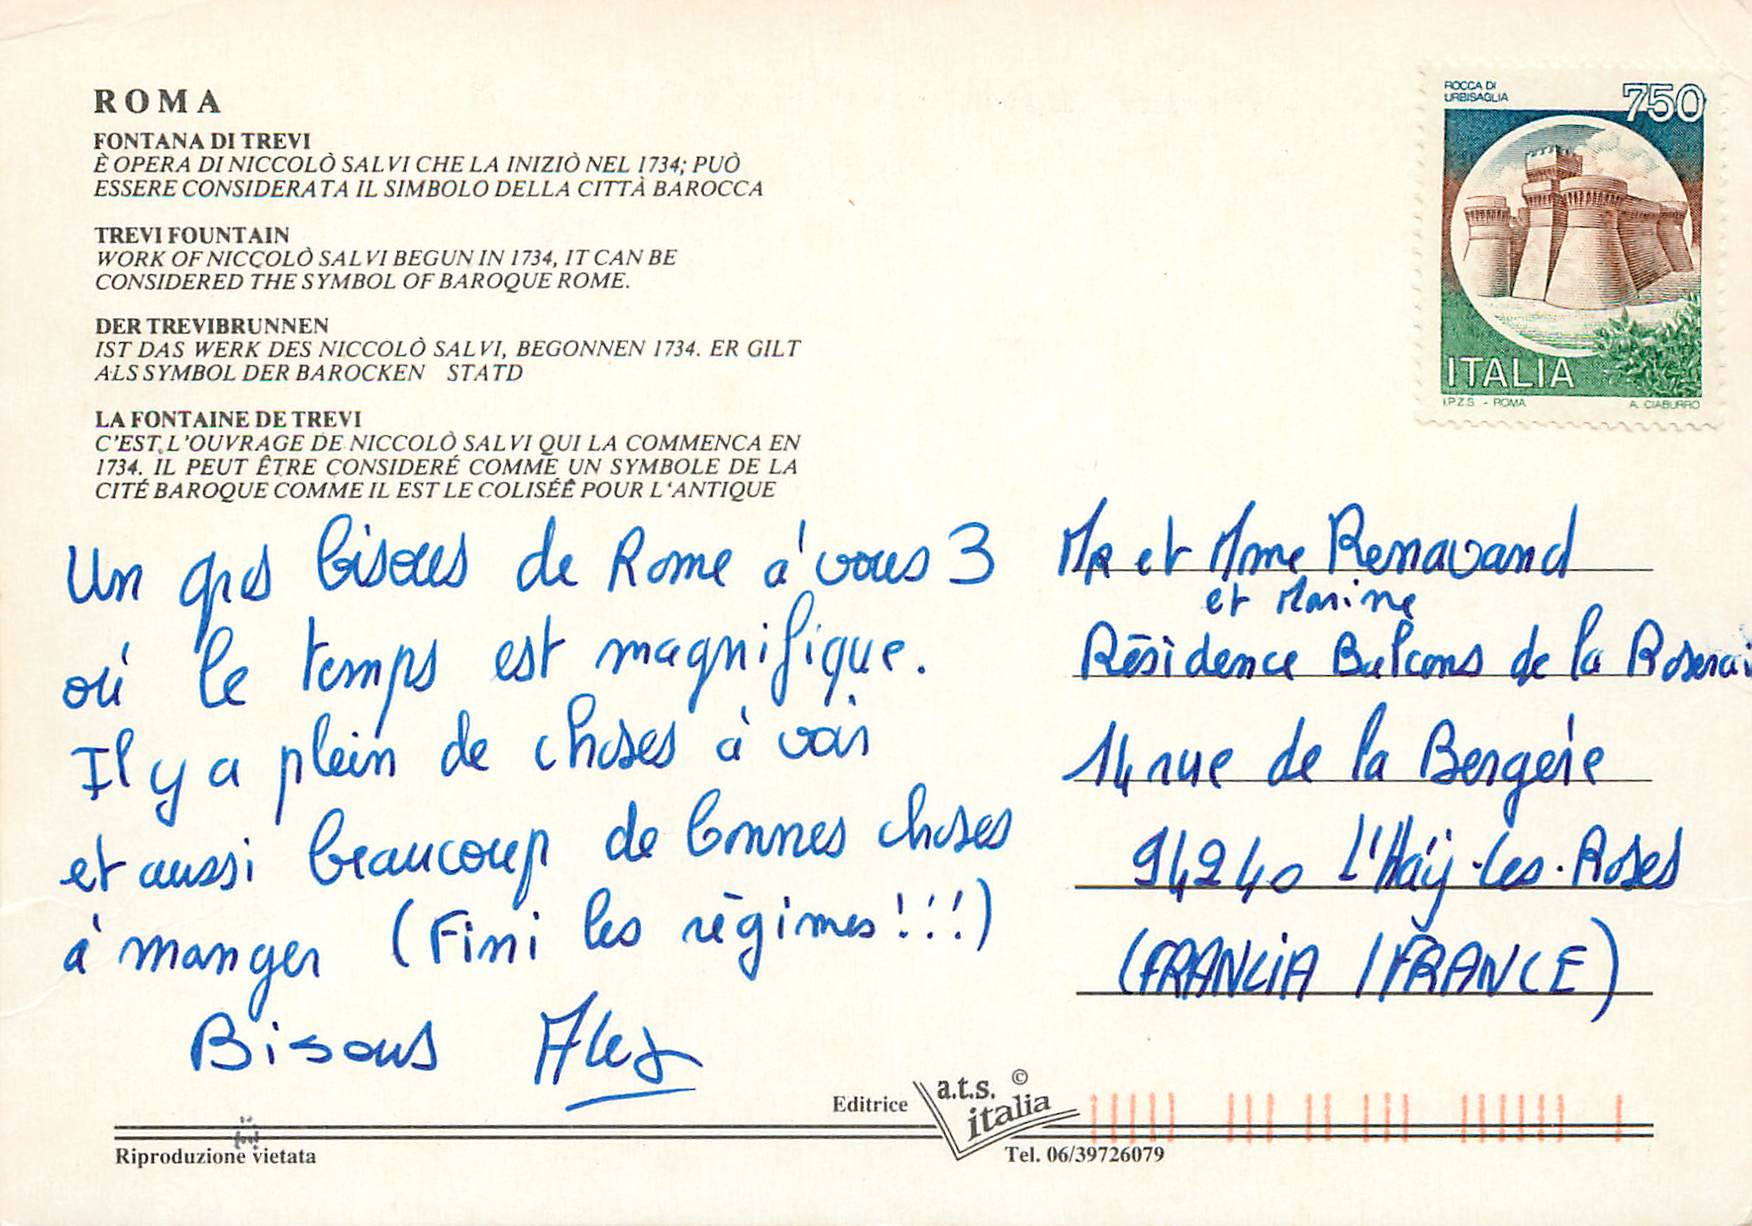 ROMA
FONTANA DI TREVI
È OPERA DI NICCOLÒ SALVI CHE LA INIZIÒ NEL 1734; PUÒ
ESSERE CONSIDERATA IL SIMBOLO DELLA CITTÀ BAROCCA
TREVI FOUNTAIN
WORK OF NICCOLÒ SALVI BEGUN IN 1734, IT CAN BE
CONSIDERED THE SYMBOL OF BAROQUE ROME.
DER TREVIBRUNNEN
IST DAS WERK DES NICCOLÒ SALVI, BEGONNEN 1734. ER GILT
ALS SYMBOL DER BAROCKEN STATD
LA FONTAINE DE TREVI
C'EST L'OUVRAGE DE NICCOLÒ SALVI QUI LA COMMENCA EN
1734. IL PEUT ÊTRE CONSIDERÉ COMME UN SYMBOLE DE LA
CITÉ BAROQUE COMME IL EST LE COLISÉÊ POUR L'ANTIQUE
ROCCA DI
URBISAGLIA
750
ITALIA
I.P.Z.S. - ROMA
A. CIABURRO
Un gros bisous de Rome à vous 3
où le temps est magnifique.
Il y a plein de choses à voir
et aussi beaucoup de bonnes choses
à manger (Fini les régimes!!!)
Bisous Alex
MR et Mme Renavand
et Marine
Résidence Balcons de la Roserai
14 rue de la Bergère
94240 L'Haÿ-les-Roses
(FRANCIA / FRANCE)
Editrice a.t.s. ©
italia
Riproduzione vietata
Tel. 06/39726079